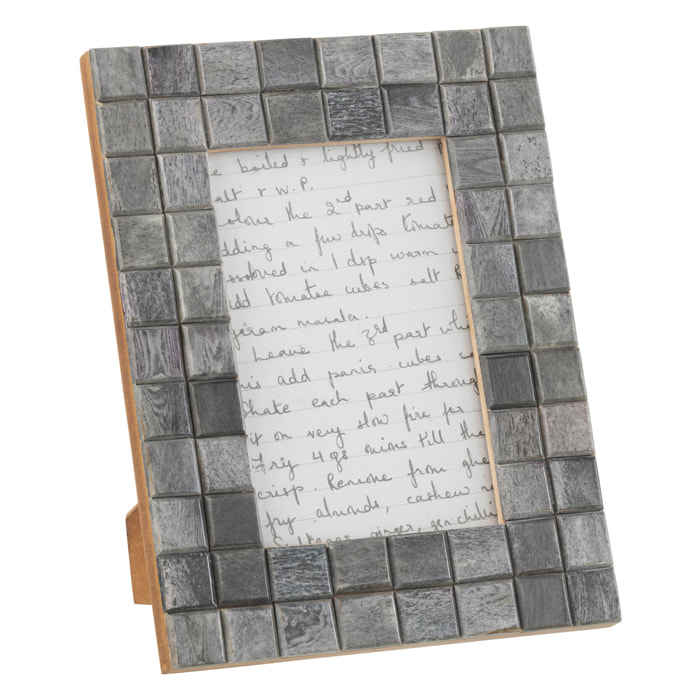 e boiled & lightly fried
alt & W.P.
olour the 2nd part red
dding a few drops tomato
ssolved in 1 dsp warm
dd tomatoe cubes salt
garam masala.
Leave the 3rd part whi
his add panir cubes
hate each part through
it on very slow fire for
Fry 4 gs onions till the
crisp. Remove from ghe
fry almonds, cashew n
ginger, gen chili